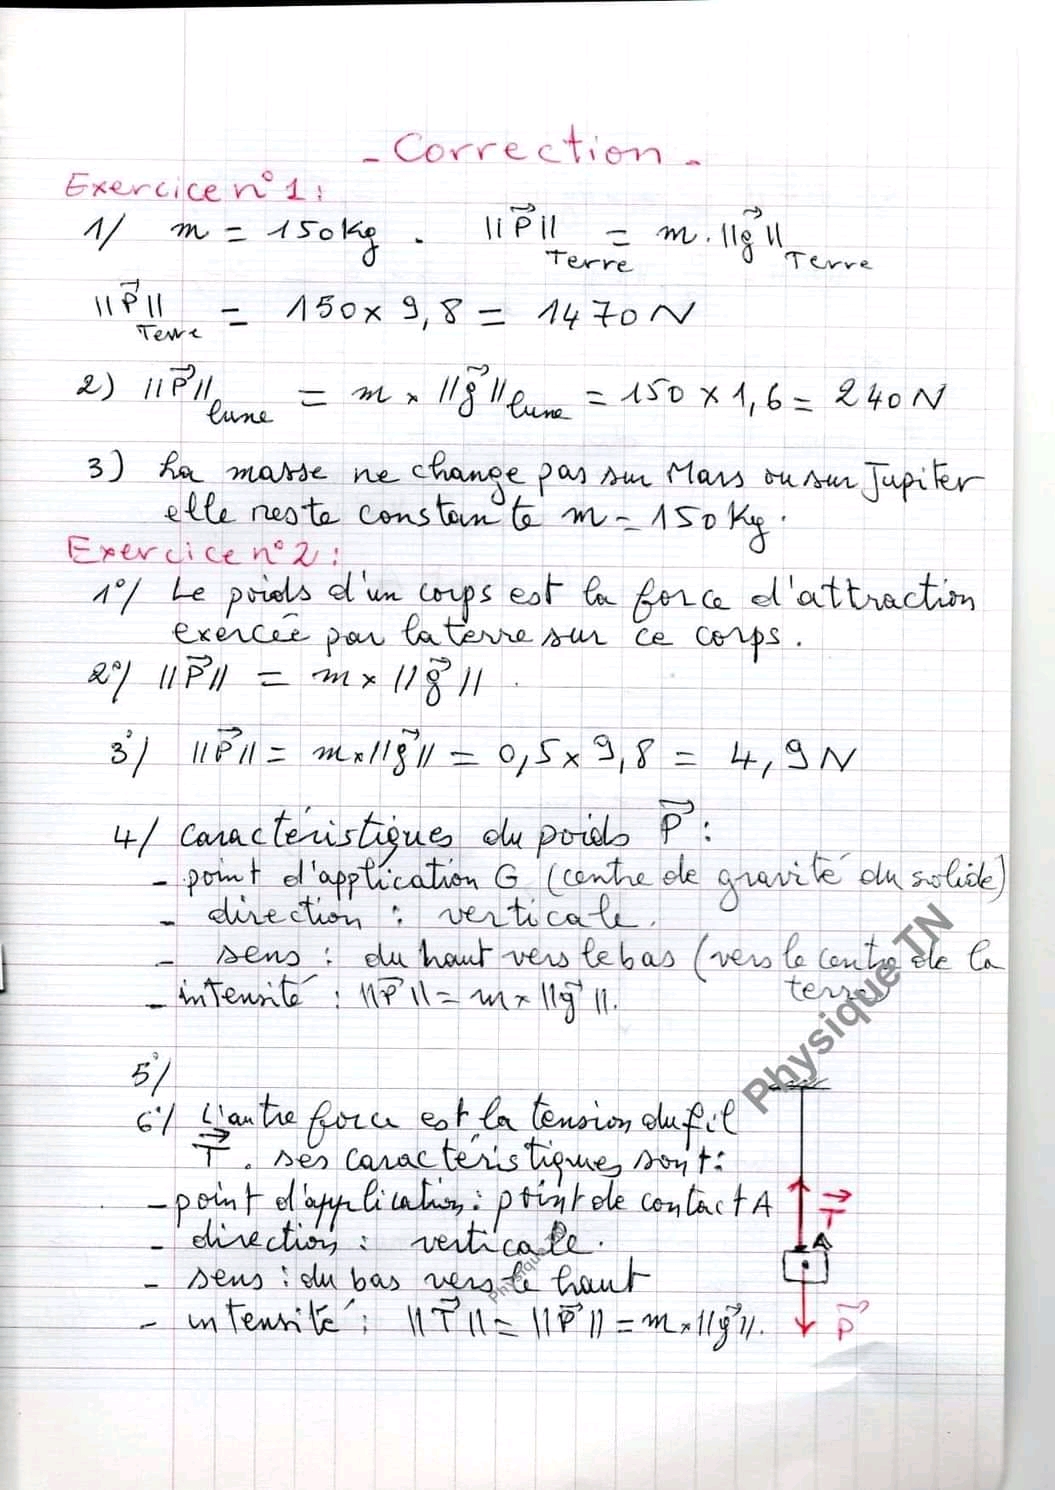 - Correction -
Exercice n°1 :
1/ m = 150 Kg . ||P⃗||Terre = m . ||g⃗||Terre
||P⃗||Terre = 150 x 9,8 = 1470 N
2) ||P⃗||lune = m x ||g⃗||lune = 150 x 1,6 = 240 N
3) La masse ne change pas sur Mars ou sur Jupiter
elle reste constante m = 150 Kg.
Exercice n°2 :
1°/ Le poids d'un corps est la force d'attraction
exercée par la terre sur ce corps.
2°/ ||P⃗|| = m x ||g⃗|| .
3°/ ||P⃗|| = m x ||g⃗|| = 0,5 x 9,8 = 4,9 N
4/ caractéristiques du poids P⃗ :
- point d'application G (centre de gravité du solide)
- direction : verticale.
- sens : du haut vers le bas (vers le centre de la
terre)
- intensité : ||P⃗|| = m x ||g⃗||.
Physique TN
5°/
6°/ L'autre force est la tension du fil
T⃗ . ses caractéristiques sont :
- point d'application : point de contact A
- direction : verticale.
- sens : du bas vers le haut
- intensité : ||T⃗|| = ||P⃗|| = m x ||g⃗||.
T⃗
A
P⃗